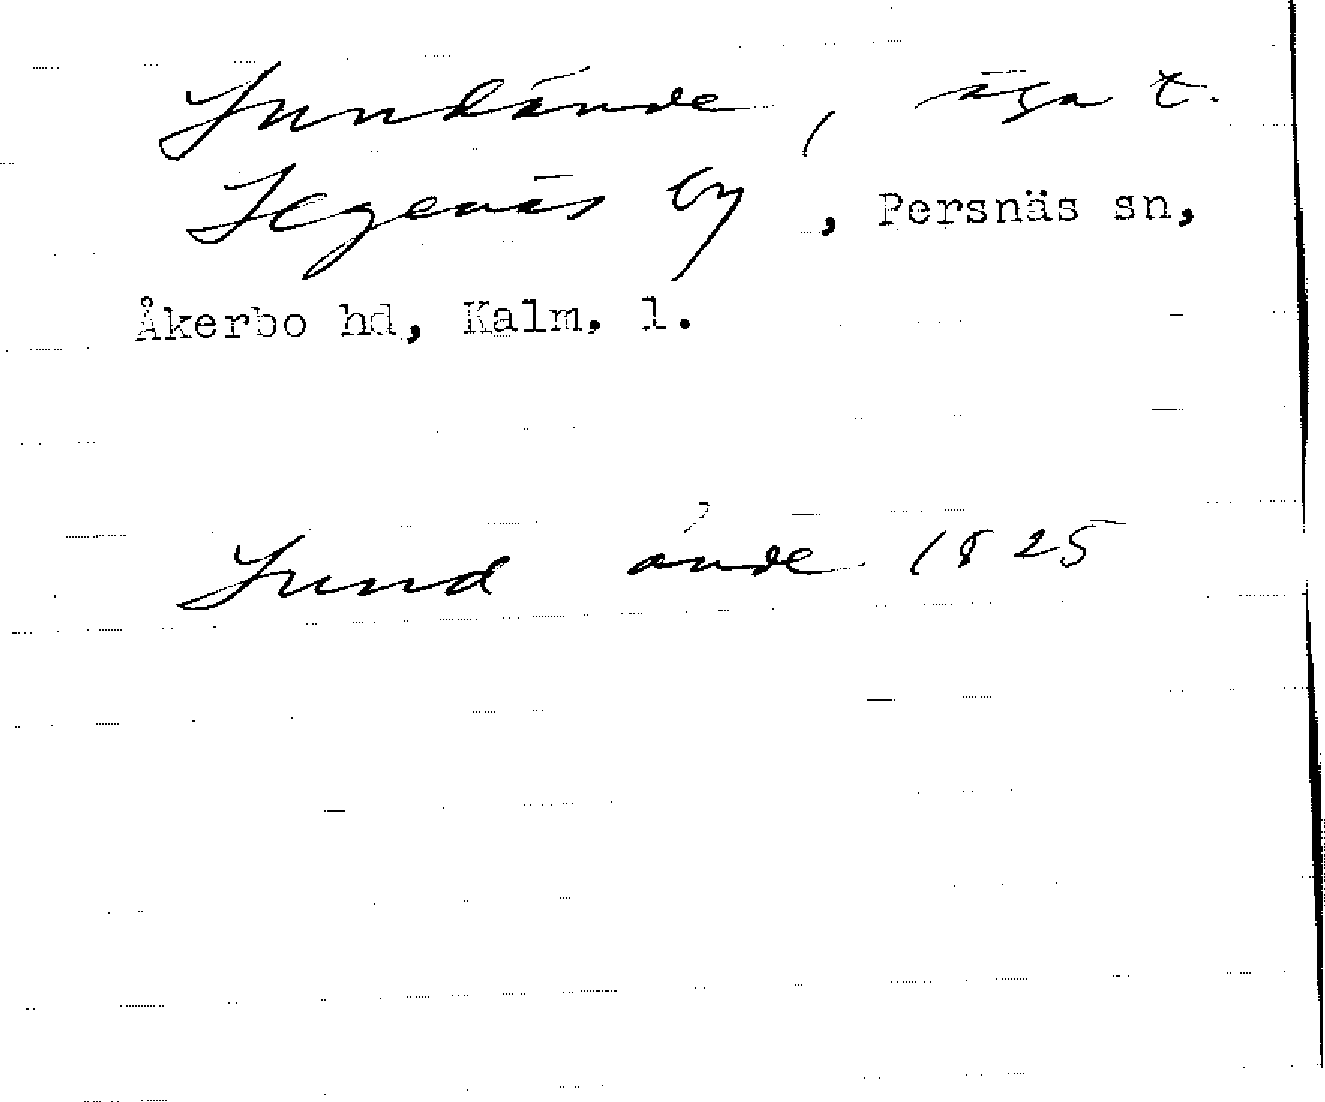 Sundände, äga t.
Legenäs by, Persnäs sn,
Åkerbo hd, Kalm. l.
Sund ände 1825